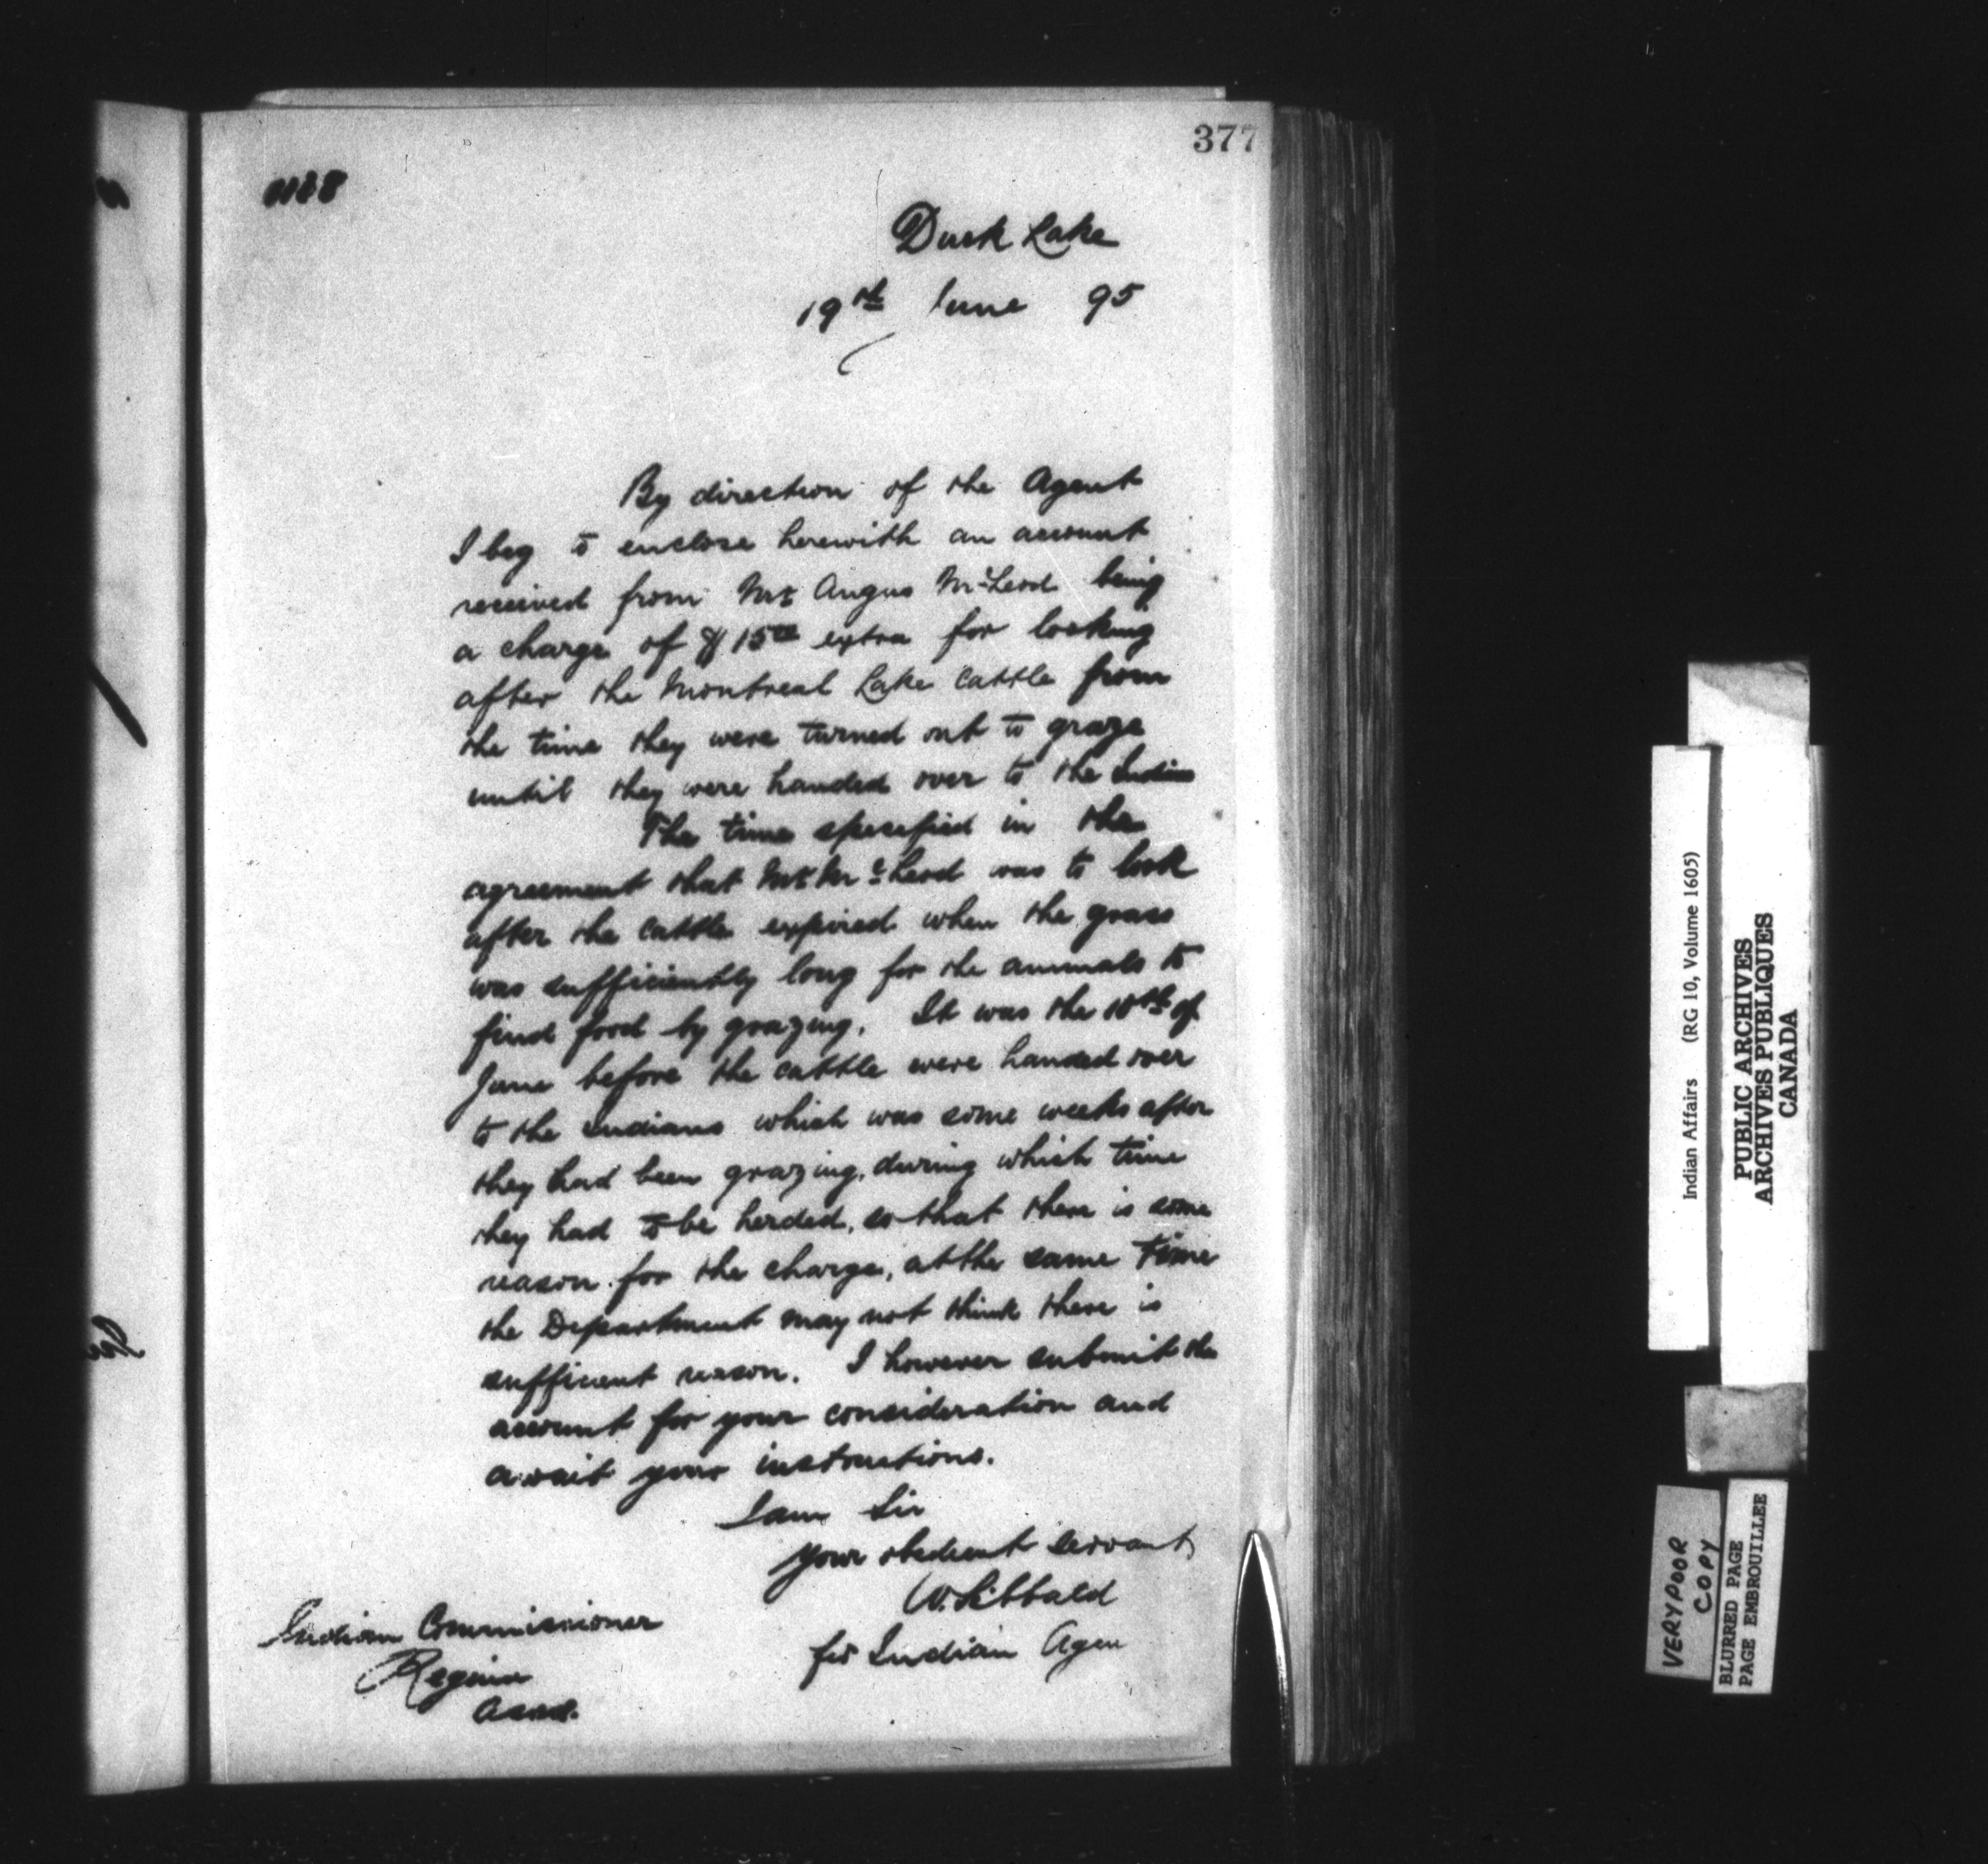 377
Duck Lake
19th June 95
By direction of the Agent
I beg to enclose herewith an account
received from Mr Angus McLeod being
a charge of $15 00 extra for looking
after the Montreal Lake cattle from
the time they were turned out to graze
until they were handed over to the Indians
The time specified in the
agreement that Mr McLeod was to look
after the cattle expired when the grass
was sufficiently long for the animals to
find food by grazing. It was the 10th of
June before the cattle were handed over
to the Indians which was some weeks after
they had been grazing, during which time
they had to be herded, so that there is some
reason for the charge, at the same time
the Department may not think there is
sufficent reason. I however submit the
account for your consideration and
await your instructions.
I am Sir
Your obedient servant
W. Sibbald
for Indian Agen
Indian Commissioner
Regina
Assa.
Indian Affairs (RG 10, Volume 1605)
PUBLIC ARCHIVES
ARCHIVES PUBLIQUES
CANADA
VERY POOR
COPY
BLURRED PAGE
PAGE EMBROUILLEE